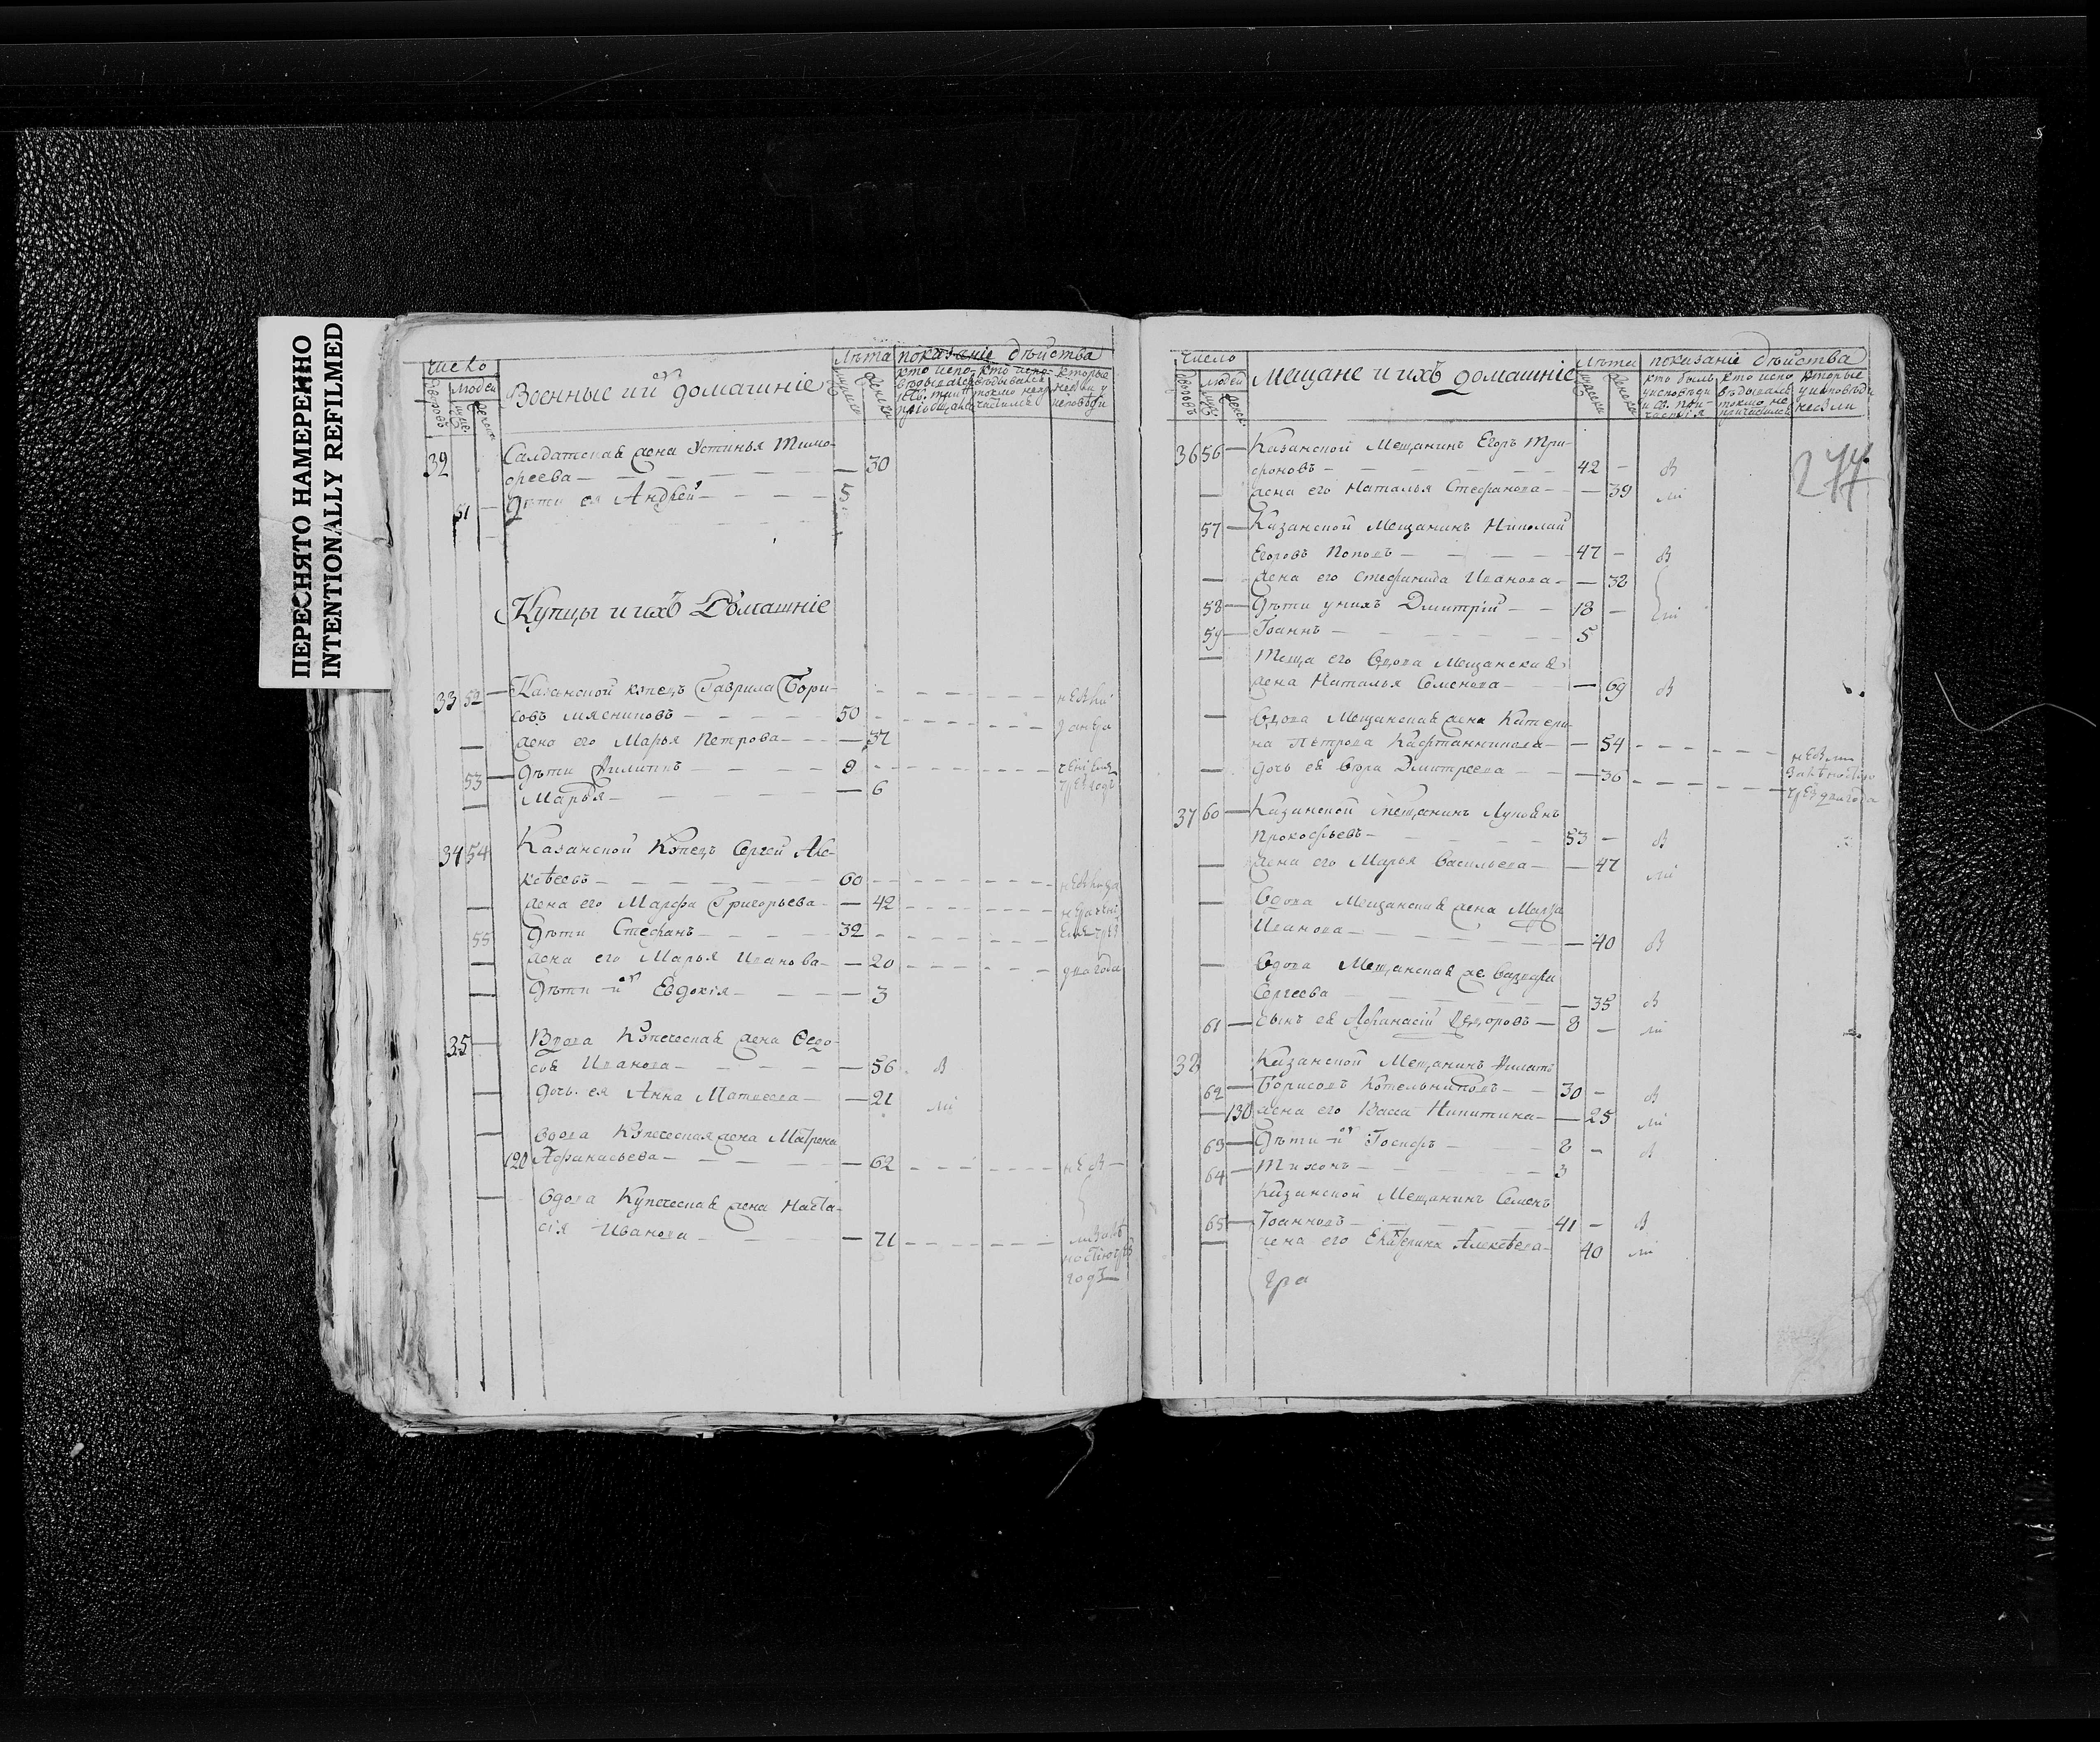 ПЕРЕСНЯТО НАМЕРЕННО
INTENTIONALLY REFILMED
число
Лѣта показанiе дѣйства
людей
Военные и ихъ домашнiе
32 Салдатская жена Устинья Тимо-
фѣева — 30
51 Дѣти ея Андрей 5
Купцы и ихъ Домашнiе
33 52 Казанской купецъ Гаврила Бори-
совъ мясниковъ 50
жена его Марья Петрова — 37
53 Дѣти Филиппъ 9
Марья — 6
34 54 Казанской Купецъ Сергей Але-
ксѣевъ 60
жена его Марфа Григорьева — 42
55 Дѣти Стефанъ 32
жена его Марья Иванова — 20
два года
Дѣти их Евдокiя — 3
35 Вдова Купеческая жена Ѳедо-
сья Иванова — 56 в
дочь ея Анна Матвеева — 21
Вдова Купеческая жена Матрена
120 Афанасьева — 62 не в
Вдова Купеческая жена Наста-
сiя Иванова — 71
годъ
число
Лѣта показанiе дѣйства
людей
Мещане и ихъ домашнiе
кто былъ кто испо которые
у исповѣди вѣдывался у исповѣди
и св. при- токмо не небыли
частiя причащался
277
36 56 Казанской Мещанинъ Егоръ Три-
фоновъ 42 — в
жена его Наталья Стефанова — 39 ли
57 Казанской Мещанинъ Николай
Егоровъ Поповъ 47 — в
жена его Стефанида Иванова — 32
58 Дѣти у нихъ Димитрiй 18 — ли
59 Iоаннъ 5
Теща его Вдова Мещанская
жена Наталья Семенова — 69 в
Вдова Мещанская жена Катери-
на Петрова Кафтанникова — 54
дочь ея Вѣра Дмитреева — 30
37 60 Казанской Мещанинъ Лукоянъ
Прокофьевъ 53 — в
жена его Марья Васильева — 47 ли
Вдова Мещанская жена Марѳа
Иванова — 40 в
Вдова Мещанская же Варвара
Сергеева — 35 в
61 сынъ ея Афанасiй Федоровъ 8 — ли
38 Казанской Мещанинъ Филатъ
62 Борисовъ Котельниковъ 30 — в
130 жена его Васса Никитина — 25 ли
63 Дѣти их Iосифъ 8 — в
64 Тихонъ 3
Казанской Мещанинъ Семенъ
65 Iоанновъ 41 — в
жена его Екатерина Алексѣева 40 ли
гра